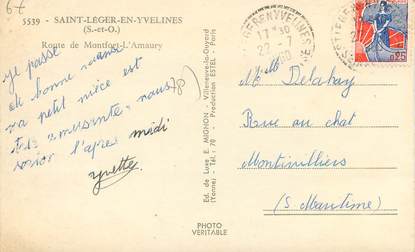 67
5539 - SAINT-LÉGER-EN-YVELINES
(S.-et-O.)
Route de Montfort-L'Amaury
je passe
de bonne
ma petit nièce est
nous
l'apres médi
yvette
Ed. de Luxe E. MIGNON - Villeneuve-la-Guyard
(Yonne) - Tél.: 70 - Production ESTEL - Paris
PHOTO
VÉRITABLE
17 H 30
22 - 7
0,25
Melle Delahay
Rue au chat
Montivilliers
(S. Maritime)